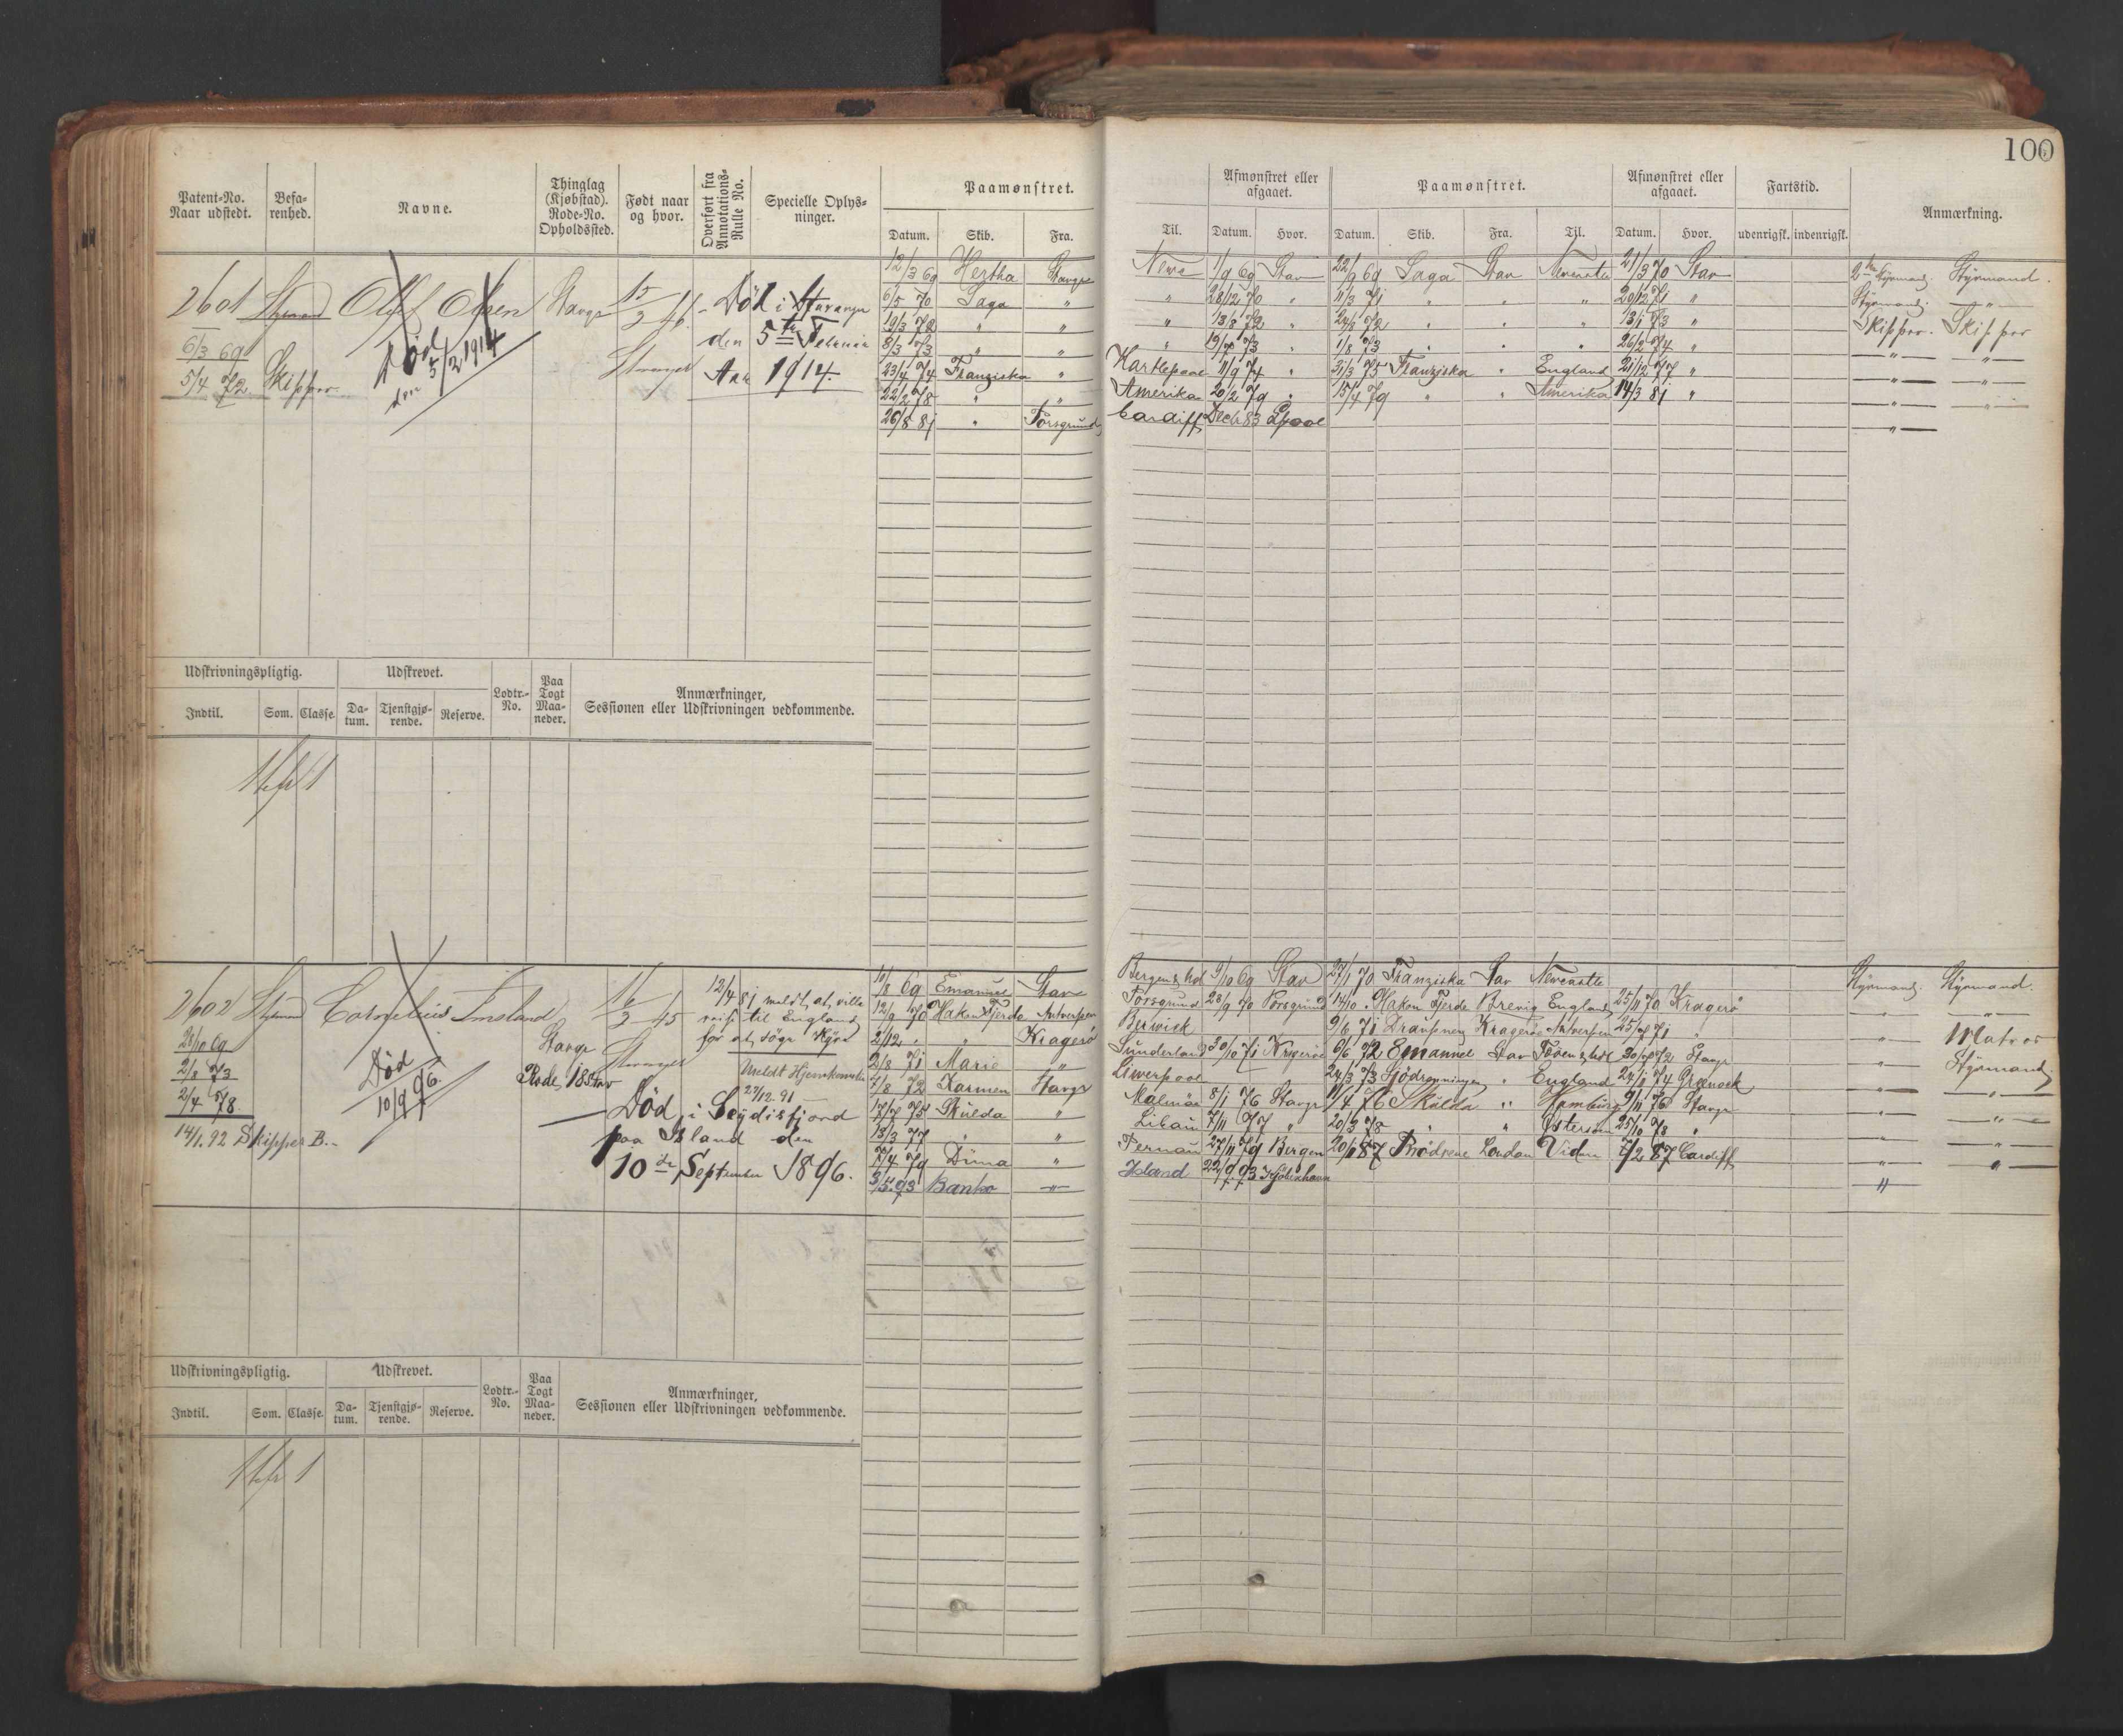 100
Patent-No. Naar udstedt. Befarenhed. Navne. Thinglag (Kjøbstad). Rode-No. Opholdssted. Født naar og hvor. Overført fra Annotations-Rulle No. Specielle Oplysninger. Paamønstret. Afmønstret eller afgaaet. Paamønstret. Afmønstret eller afgaaet. Fartstid. Anmærkning.
Datum. Skib. Fra. Til. Datum. Hvor. Datum. Skib. Fra. Til. Datum. Hvor. udenrigsk. indenrigsk.
2601 Styrmand Olsen Stavgr 15/3 Død i Stavanger
den 5te Februar
Aar 1914.
6/3 69
5/4 72 Skipper
Død
den 5/2 1914
12/3 69 Hertha Stavgr Newc 1/9 69 Stav 22/9 69 Saga Stav Newcastle 21/3 70 Stav 2den Styrmand. Styrmand.
6/5 70 Saga " " 28/12 70 " 11/3 71 " " " 20/12 71 " Styrmand. "
19/3 72 " " " 13/8 72 " 24/8 72 " " " 13/1 73 " Skipper. Skipper
8/3 73 " " " 19/7 73 " 1/8 73 " " " 26/2 74 " " "
23/4 74 Franziska " Hartlepool 11/9 74 " 31/3 75 Franziska " England 21/12 77 " " "
22/2 78 " " Amerika 20/2 79 " 15/4 79 " " Amerika 14/3 81 " " "
26/8 81 " Porsgrund Cardiff Decb 83 Lpool "
Udskrivningspligtig. Udskrevet. Lodtr.-No. Paa Togt Maaneder. Anmærkninger, Sessionen eller Udskrivningen vedkommende.
Indtil. Som. Classe. Datum. Tjenstgjørende. Reserve.
1
2602 Styrmand Cornelius Imsland Stavgr
Rode 18 Stav
28/10 69
2/8 73
2/4 78
14/1.92 Skipper B.-
Død
10/9 96.
12/4 81 meldt, at, ville
reise til England
for at søge Hyre
Meldt Hjemkommen
27/12.91
Død i Seydisfjord
paa Island den
10de September 1896.
11/8 69 Emanuel Stav 9/10 69 Stav 27/1 70 Franziska Stav Newcastle Styrmand. Styrmand.
12/9 70 Hakon Jerde Antwerpen Porsgrund 28/9 70 Porsgrund 14/10 " Hakon Jerde Brevig England 25/11 70 Kragerø " "
2/12 " " Kragerø Berwick 9/6 71 Draupner Kragerø Antwerpen 25/7 71 " " Matros
2/8 71 Marie " Sunderland 30/10 71 Kragerø 6/6 72 Emanuel Stav 30/7 72 Stavgr " Styrmand.
7/8 72 Karmen Stavgr Liwerpool 24/3 73 Sjödronningen " England 24/8 74 Greenock " "
17/7 75 Skulda " Malmøe 8/1 76 Stavgr 11/4 76 Skulda " Hamburg 9/11 76 Stavgr " "
13/3 77 " " Libau 7/11 77 " 20/3 78 " " Østersøen 25/10 78 " " "
7/4 79 Dima " Pernau 27/11 79 Bergen 20/1 87 London 7/2 87 Cardiff " "
3/5.93 Banko " Island 22/9.93 Kjöbenhavn "
Udskrivningspligtig. Udskrevet. Lodtr.-No. Paa Togt Maaneder. Anmærkninger, Sessionen eller Udskrivningen vedkommende.
Indtil. Som. Classe. Datum. Tjenstgjørende. Reserve.
1